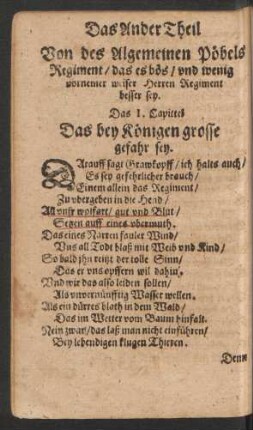 Das Ander Theil
Von des Algemeinen Pöbels
Regiment / das es bös / vnd wenig
vornemer weiser Herren Regiment
besser sey.
Das I. Capittel
Das bey Königen grosse
gefahr sey.
Darauff sagt Grawkopff / ich halts auch /
Es sey gefehrlicher brauch /
Einem allein das Regiment /
Zu vbergeben in die Hend /
All vnsr wolfart / gut vnd Blut /
Setzen auff eines vbermuth.
Das eines Narren fauler Wind /
Vns all Todt blaß mit Weib vnd Kind /
So bald jhn reitzt der tolle Sinn /
Das er vns opffern wil dahin.
Vnd wir das also leiden sollen /
Als vnvernünfftig Wasser wellen.
Als ein dürres blath in dem Wald /
Das im Wetter vom Baum hinfalt.
Nein zwar / das laß man nicht einführen /
Bey lebendigen klugen Thieren.
Denn